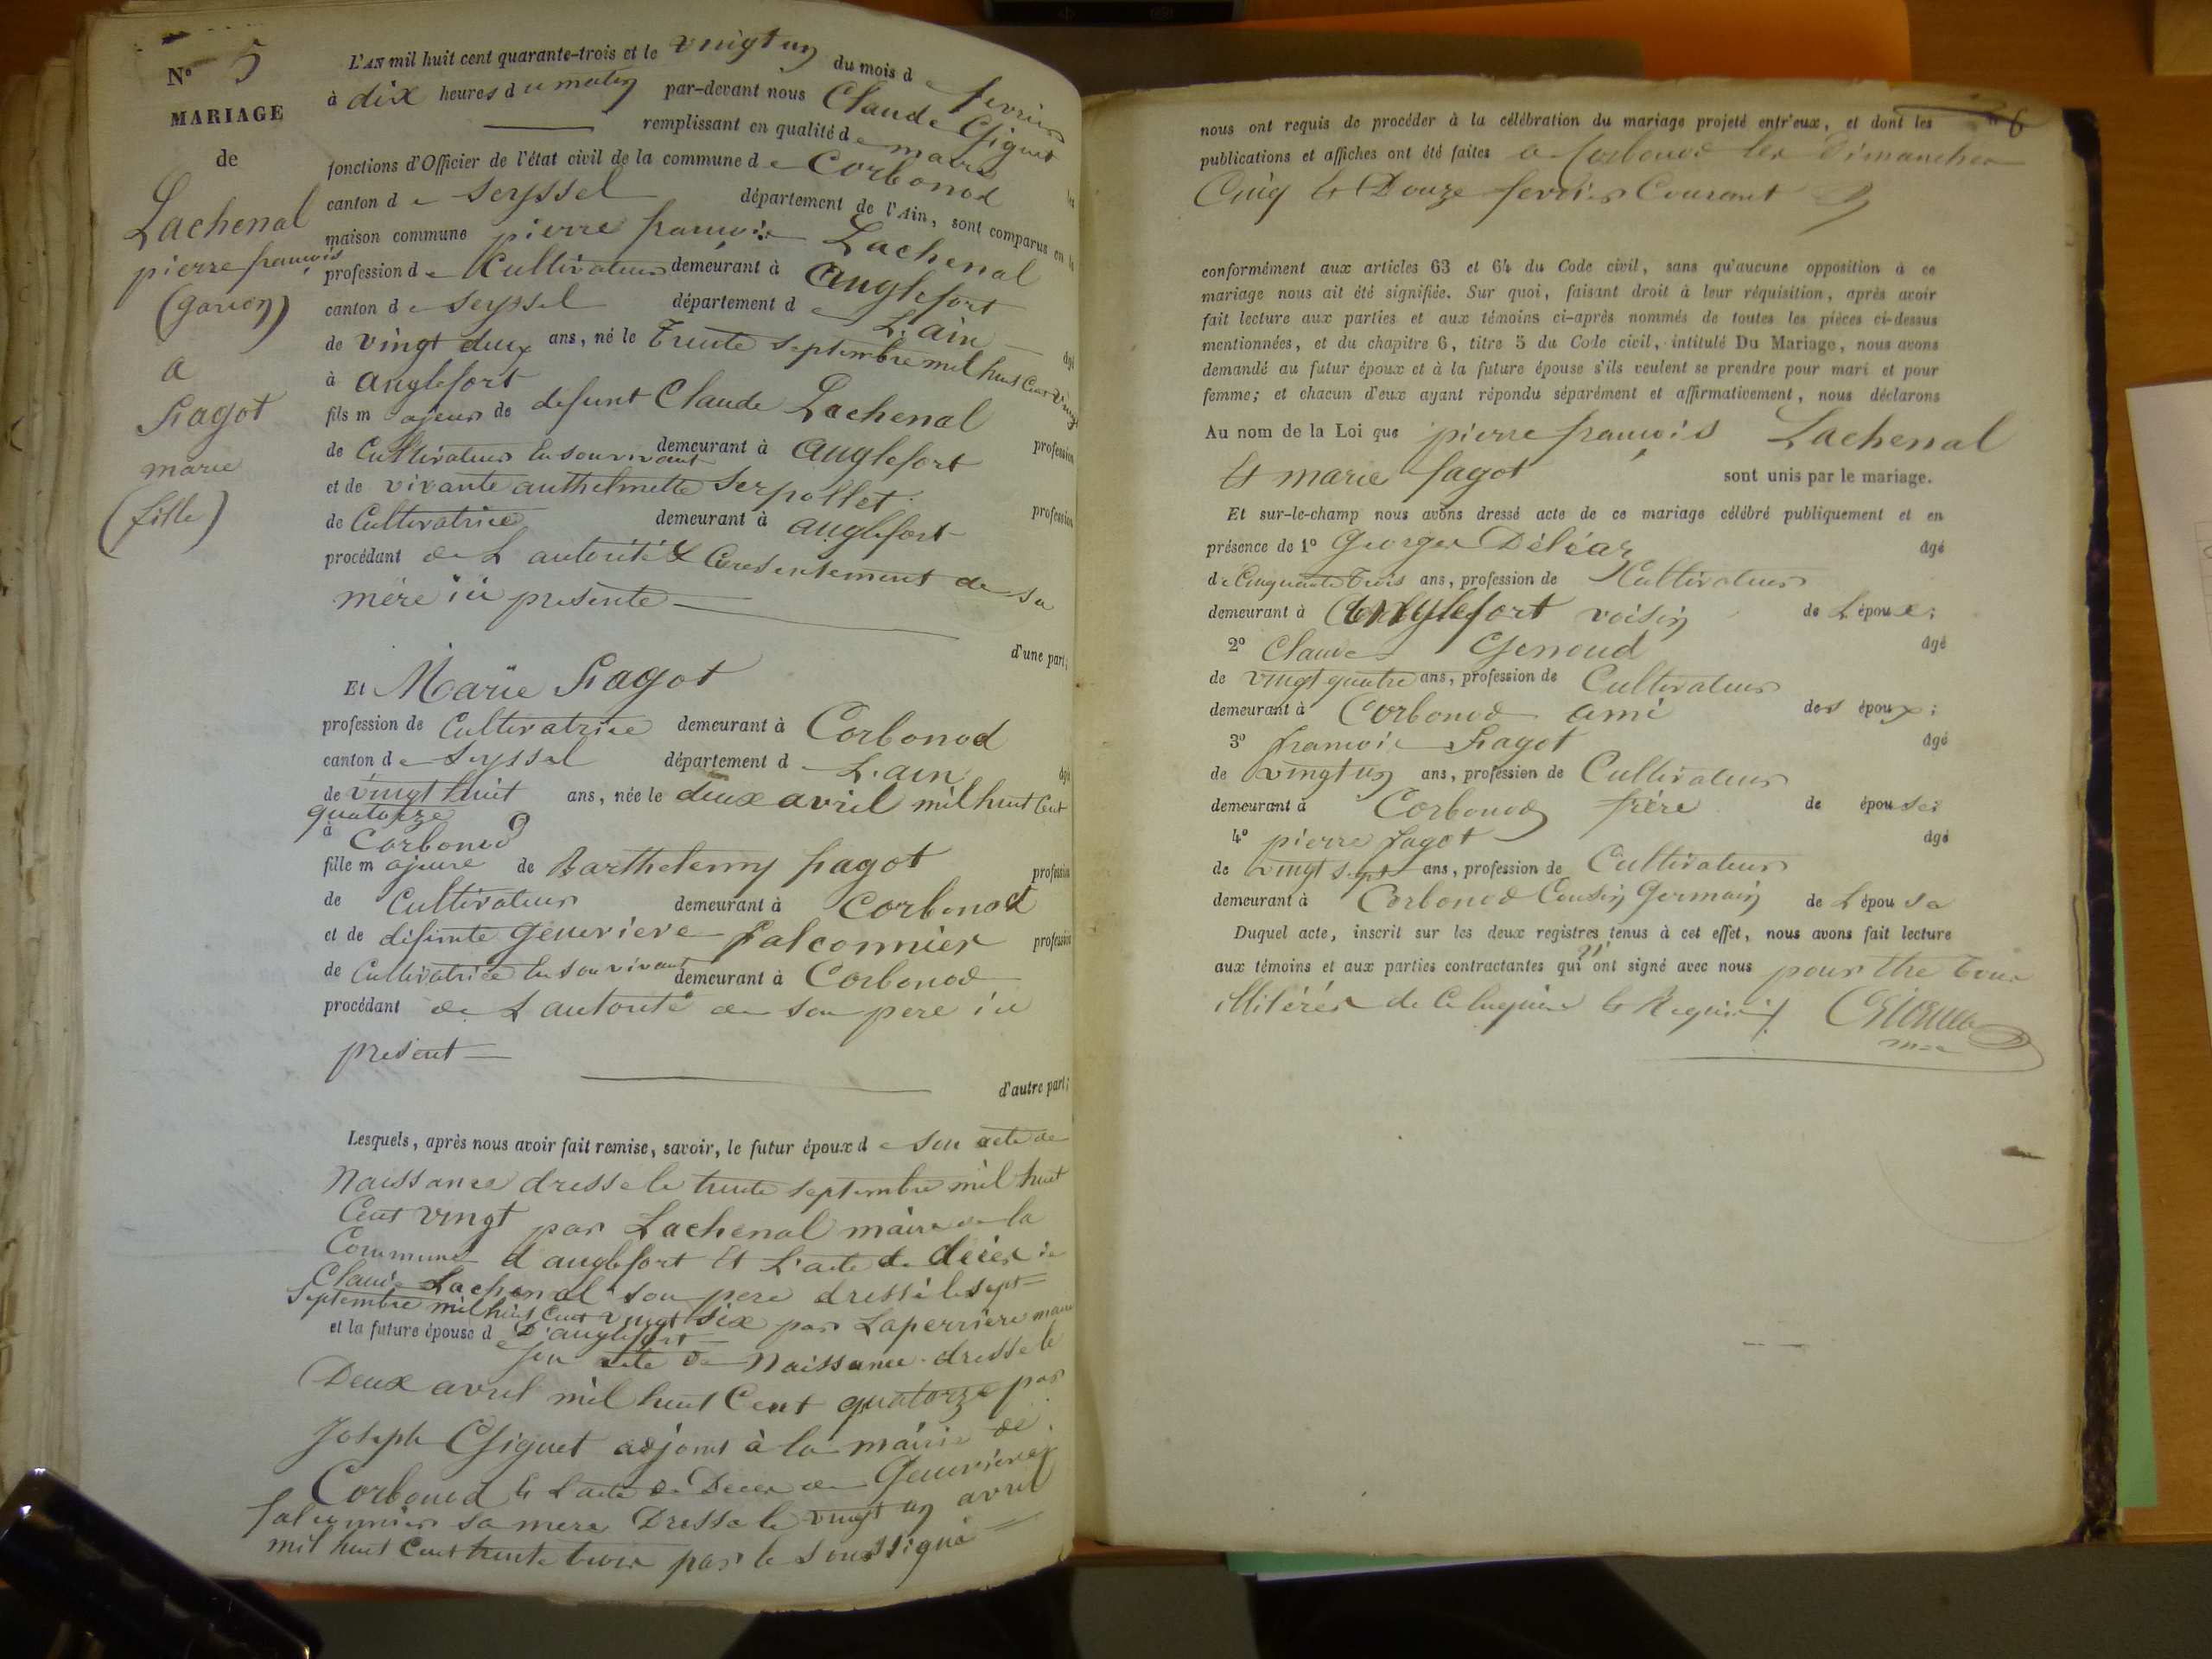 N° 5
MARIAGE
de
Lachenal
pierre françois
(garçon)
a
Fagot
marie
(fille)
L'AN mil huit cent quarante-trois et le vingt un du mois de fevrier
à dix heures du matin par-devant nous Claude Giguet
remplissant en qualité de maire les
fonctions d'Officier de l'état civil de la commune de Corbonod
canton de Seyssel département de l'Ain, sont comparus en la
maison commune pierre françois Lachenal
profession de Cultivateur demeurant à anglefort
canton de Seyssel département de L'ain âgé
de vingt deux ans, né le trente septembre mil huit Cent vingt
à anglefort
fils majeur de defunt Claude Lachenal profession
de Cultivateur en son vivant demeurant à anglefort
et de vivante anthelmette Serpollet profession
de Cultivatrice demeurant à anglefort
procédant de L autorité & Consentement de sa
mère ici presente
d'une part;
Et Marie Fagot
profession de Cultivatrice demeurant à Corbonod
canton de Seyssel département de L'ain âgée
de vingt huit ans, née le deux avril mil huit Cent
quatorze
à Corbonod
fille majeure de Barthelemy fagot profession
de Cultivateur demeurant à Corbonod
et de défunte Genevieve falconnier profession
de Cultivatrice en son vivant demeurant à Corbonod
procédant de L autorité de son pere ici
present
d'autre part;
Lesquels, après nous avoir fait remise, savoir, le futur époux de son acte de
Naissance dressé le trente septembre mil huit
Cent vingt par Lachenal maire de la
Commune d anglefort Et L'acte de décès de
Claude Lachenal son pere dressé le sept
septembre mil huit Cent vingt six par Laperriere maire
D'anglefort
et la future épouse de son acte de Naissance dressé le
Deux avril mil huit Cent quatorze par
Joseph Giguet adjoint à la mairie de
Corbonod Et L acte de Decès de Genevieve
falconnier sa mere Dressé le vingt un avril
mil huit Cent trente trois par le soussigné
6
nous ont requis de procéder à la célébration du mariage projeté entr'eux, et dont les
publications et affiches ont été faites a Corbonod les Dimanches
Cinq Et Douze fevrier Courant
conformément aux articles 63 et 64 du Code civil, sans qu'aucune opposition à ce
mariage nous ait été signifiée. Sur quoi, faisant droit à leur réquisition, après avoir
fait lecture aux parties et aux témoins ci-après nommés de toutes les pièces ci-dessus
mentionnées, et du chapitre 6, titre 5 du Code civil, intitulé Du Mariage, nous avons
demandé au futur époux et à la future épouse s'ils veulent se prendre pour mari et pour
femme; et chacun d'eux ayant répondu séparément et affirmativement, nous déclarons
Au nom de la Loi que pierre françois Lachenal
Et marie fagot sont unis par le mariage.
Et sur-le-champ nous avons dressé acte de ce mariage célébré publiquement et en
présence de 1° George Déléaz âgé
de Cinquante trois ans, profession de Cultivateur
demeurant à anglefort voisin de L époux;
2° Claude Genoud âgé
de vingt quatre ans, profession de Cultivateur
demeurant à Corbonod ami des époux;
3° françois Fagot âgé
de vingt un ans, profession de Cultivateur
demeurant à Corbonod frère de épouse;
4° pierre fagot âgé
de vingt sept ans, profession de Cultivateur
demeurant à Corbonod Cousin Germain de L épouse
Duquel acte, inscrit sur les deux registres tenus à cet effet, nous avons fait lecture
aux témoins et aux parties contractantes qui n' ont signé avec nous pour être tous
illitérés de Ce Enquis Et Requis